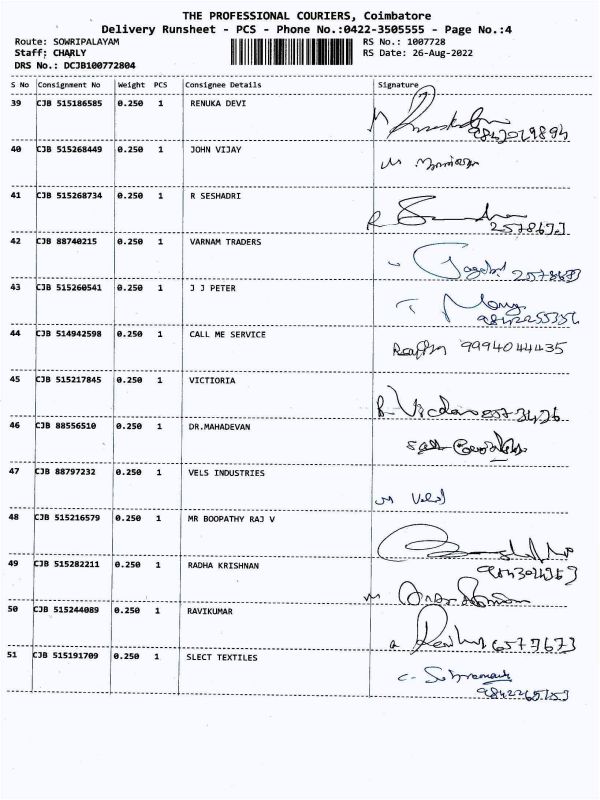 THE PROFESSIONAL COURIERS, Coimbatore
Delivery Runsheet - PCS - Phone No.:0422-3505555 - Page No.:4
Route: SOWRIPALAYAM RS No.: 1007728
Staff: CHARLY RS Date: 26-Aug-2022
DRS No.: DCJB100772804
S No Consignment No Weight PCS Consignee Details Signature
39 CJB 515186585 0.250 1 RENUKA DEVI
40 CJB 515268449 0.250 1 JOHN VIJAY
41 CJB 515268734 0.250 1 R SESHADRI
42 CJB 88740215 0.250 1 VARNAM TRADERS
43 CJB 515260541 0.250 1 J J PETER
44 CJB 514942598 0.250 1 CALL ME SERVICE 9994044435
45 CJB 515217845 0.250 1 VICTIORIA
46 CJB 88556510 0.250 1 DR.MAHADEVAN
47 CJB 88797232 0.250 1 VELS INDUSTRIES
48 CJB 515216579 0.250 1 MR BOOPATHY RAJ V
49 CJB 515282211 0.250 1 RADHA KRISHNAN
50 CJB 515244089 0.250 1 RAVIKUMAR
51 CJB 515191709 0.250 1 SLECT TEXTILES